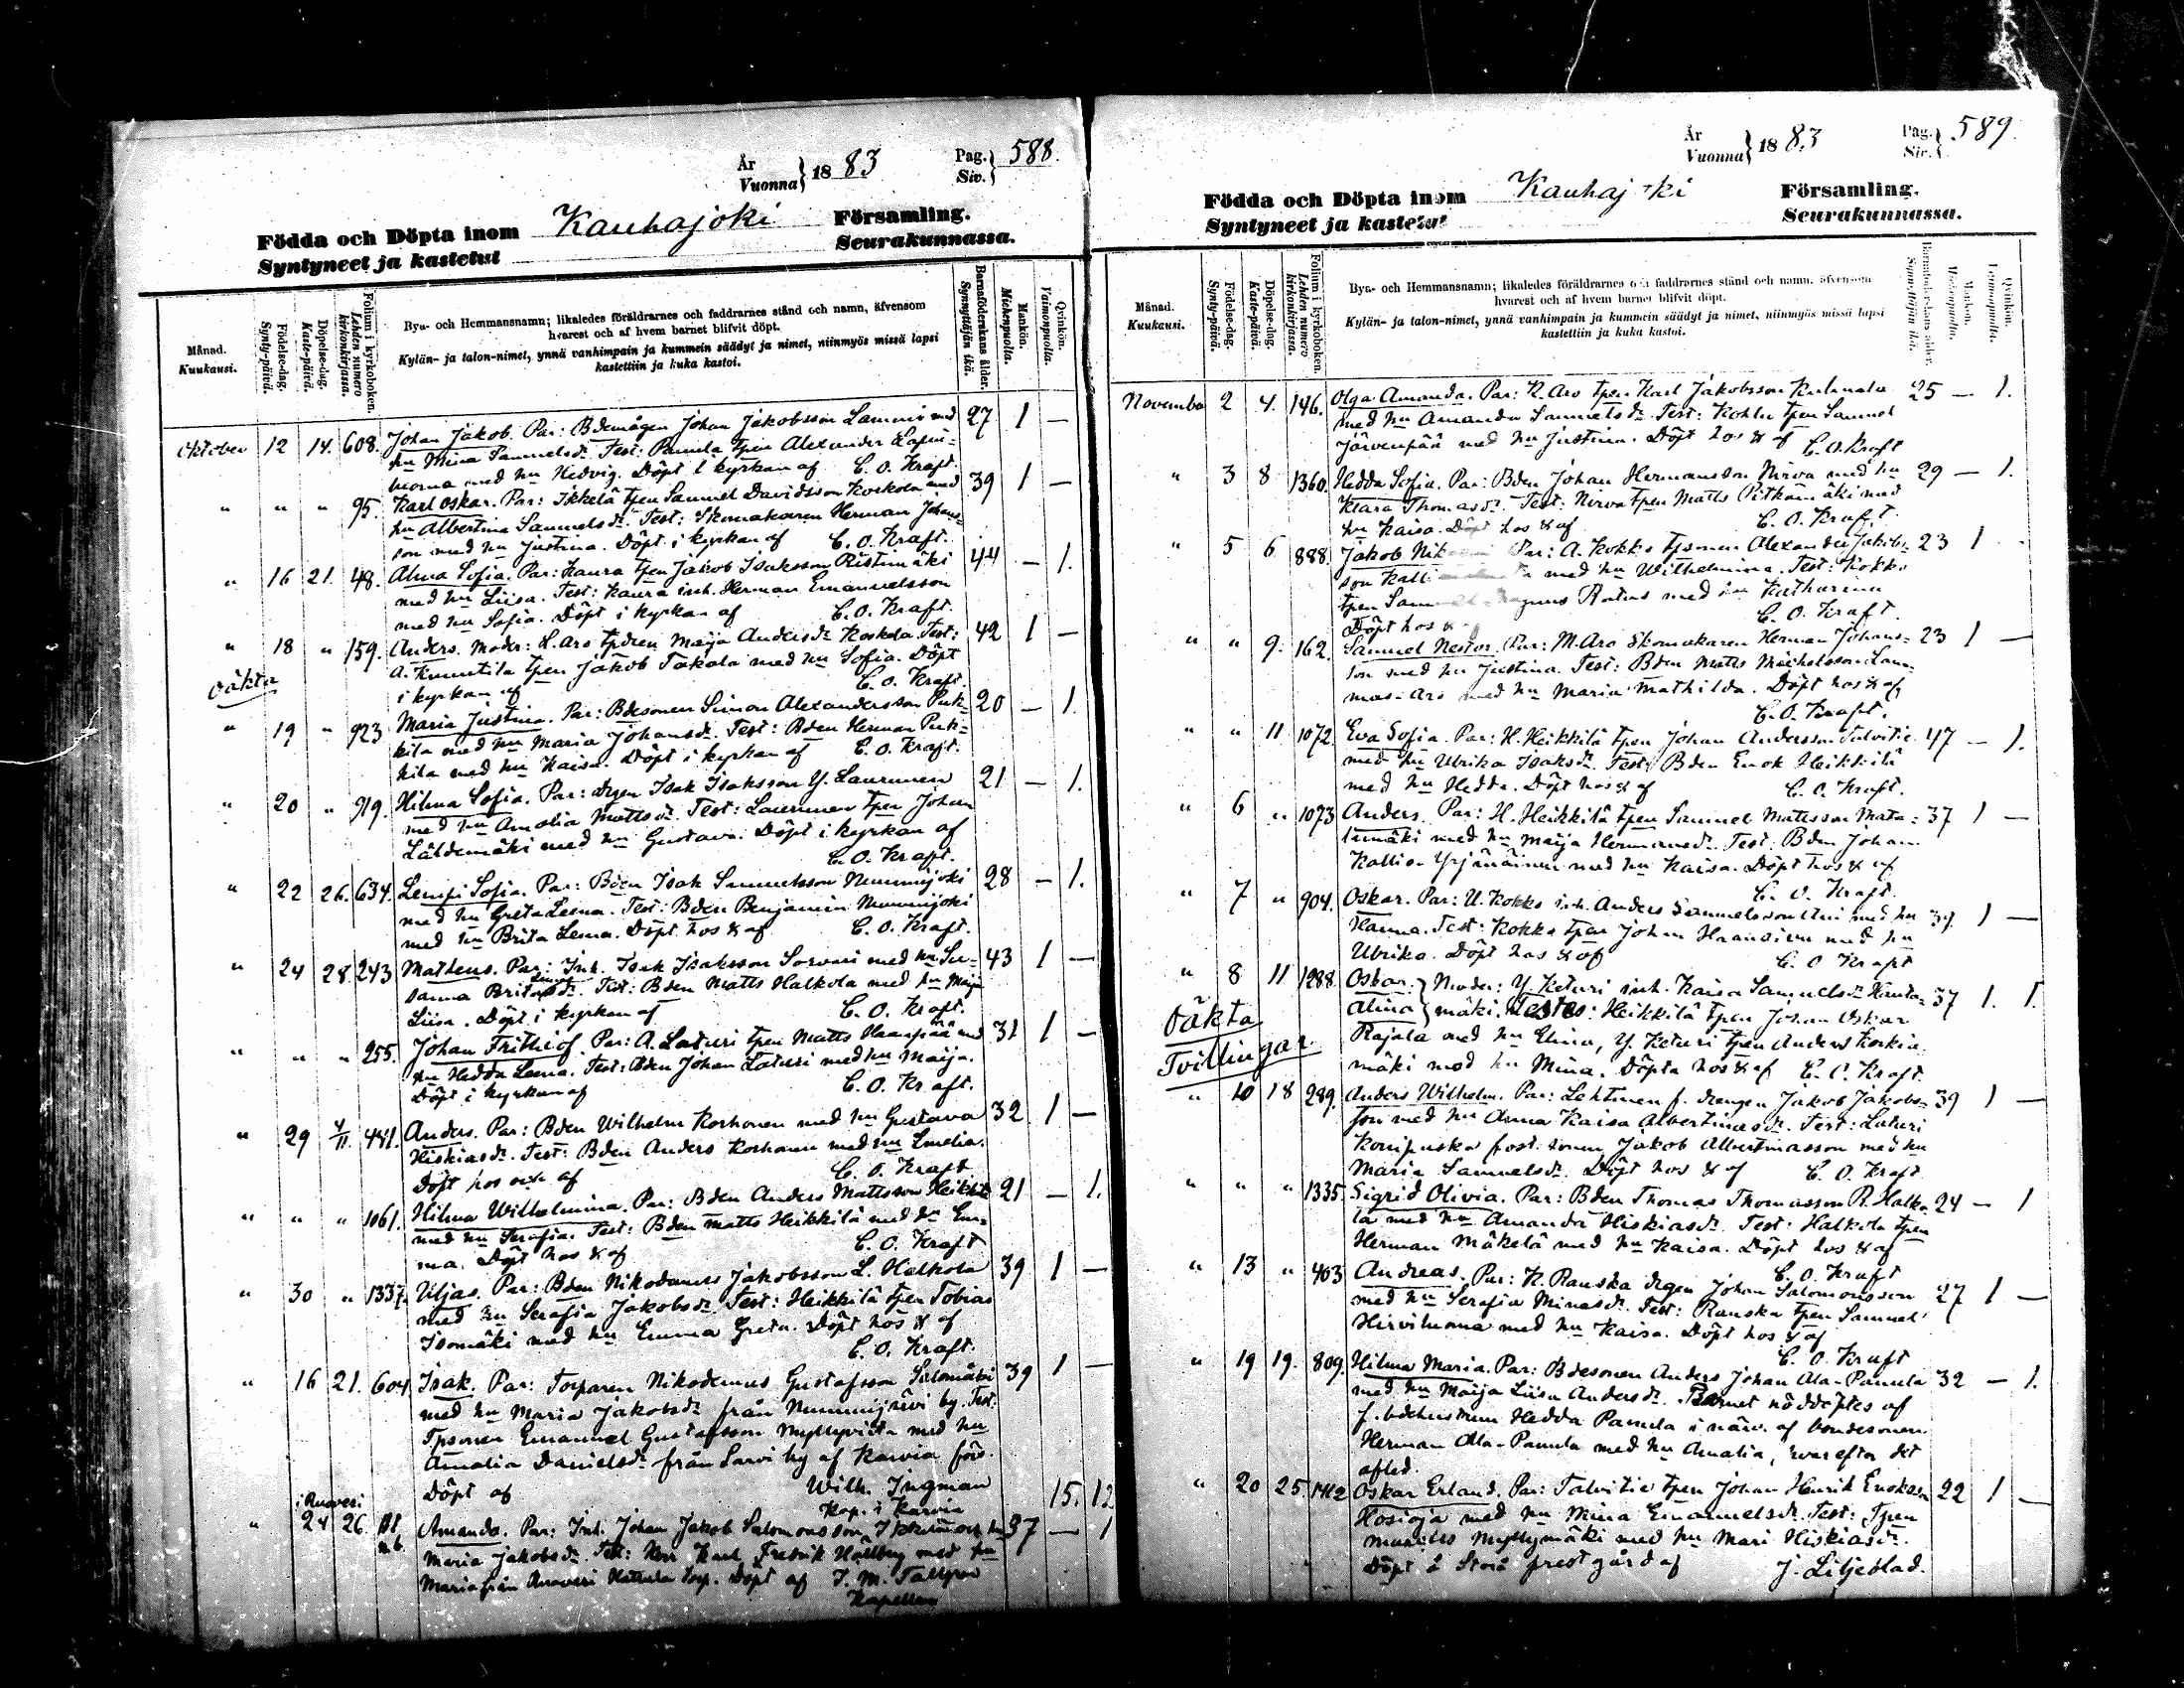 År
Vuonna } 18 83
Pag.
Siv. } 588.
Födda och Döpta inom Kauhajoki Församling.
Syntyneet ja kastetut Seurakunnassa.
Månad.
Kuukausi.
Födelse-dag.
Synty-päivä.
Döpelse-dag.
Kaste-päivä.
Folium i kyrkoboken.
Lehden numero kirkonkirjassa.
Bya- och Hemmansnamn; likaledes föräldrarnes och faddrarnes stånd och namn, äfvensom
hvarest och af hvem barnet blifvit döpt.
Kylän- ja talon-nimet, ynnä vanhimpain ja kummein säädyt ja nimet, niinmyös missä lapsi
kastettiin ja kuka kastoi.
Barnaföderskans ålder.
Synnyttäjän ikä.
Mankön.
Miehenpuolia.
Qvinkön.
Vaimonpuolia.
Oktober 12 14. 608. Johan Jakob. Par: Bdemågen Johan Jakobsson Lammi med 27 1 —
hu Mina Samuelsdr. Test: Panula tpen Alexander Lapin-
med hu Hedvig. Döpt i kyrkan af C. O. Kraft.
" " " 95. Karl Oskar. Par: Ikkelä tpen Samuel Davidsson Koskola med 39 1 —
hu Albertina Samuelsdr. Test: Skomakaren Herman Johans-
son med hu Justina. Döpt i kyrkan af C. O. Kraft.
" 16 21. 48. Alma Sofia. Par: Kaura tpen Jakob Isaksson Ristimäki 44 — 1.
med hu Liisa. Test: Kaura inh. Herman Emanuelsson
med hu Sofia. Döpt i kyrkan af C. O. Kraft.
" 18 " 159. Anders. Moder: L. Aro tpdren Maija Andersdr. Koskela. Test: 42 1 —
oäkta A. Knuuttila tpen Jakob Takala med hu Sofia. Döpt
i kyrkan af C. O. Kraft.
" 19 " 923 Maria Justina. Par: Bdesonen Simon Alexandersson Puk- 20 — 1.
kila med hu Maria Johansdr. Test: Bden Herman Puk-
kila med hu Kaisa. Döpt i kyrkan af C. O. Kraft.
" 20 " 919. Hilma Sofia. Par: drgen Isak Isaksson Y. Laurunen 21 — 1.
med hu Amalia Mattsdr. Test: Laurunen tpen Johan
Lähdemäki med hu Gustava. Döpt i kyrkan af
C. O. Kraft.
" 22 26. 634. Lempi Sofia. Par: Bden Isak Samuelsson Nummijoki 28 — 1.
med hu Greta Leena. Test: Bden Benjamin Nummijoki
med hu Brita Lena. Döpt hos & af C. O. Kraft.
" 24 28. 243 Matheus. Par: Inh. Isak Isaksson Sorvari med hu Su- 43 1 —
sanna Brita dr. Test: Bden Matts Halkola med hu Maija
Liisa. Döpt i kyrkan af C. O. Kraft.
" " " 255. Johan Frithiof. Par: A. Laturi tpen Matts Haanpää med 31 1 —
hu Hedda Leena. Test: Bden Johan Laturi med hu Maija.
Döpt i kyrkan af C. O. Kraft.
" 29 4/11. 481. Anders. Par: Bden Wilhelm Korhonen med hu Gustava 32 1 —
Hiskiasdr. Test: Bden Anders Korhonen med hu Emelia.
Döpt hos och af C. O. Kraft
" " " 1061. Hilma Wilhelmina. Par: Bden Anders Mattsson Heikkilä 21 — 1.
med hu Serafia. Test: Bden Matts Heikkilä med dr Em-
ma. Döpt hos & af C. O. Kraft
" 30 " 1337. Uljas. Par: Bden Nikodemus Jakobsson L. Halkola 39 1 —
med hu Serafia Jakobsdr. Test: Heikkilä tpen Tobias
Isomäki med hu Emma Greta. Döpt hos & af
C. O. Kraft.
" 16 21. 604. Isak. Par: Torparen Nikodemus Gustafsson Salomäki 39 1 —
med hu Maria Jakobsdr. från Nummijärvi by. Test:
Tpsonen Emanuel Gustafsson Myllyviita med hu
Amalia Danielsdr. från Sarvi by af Karvia förs.
Döpt af Wilh. Ingman
Kap. i Karvia 15. 12
i Ruovesi
" 24 26. Amanda. Par: Inh. Johan Jakob Salomonsson hu 37 — 1
Maria Jakobsdr. Test: Karl Fredrik Hållberg med hu
Maria från Ruovesi torp. Döpt af
Kapellan
År
Vuonna } 18 83
Pag.
Siv. } 589.
Födda och Döpta inom Kauhajoki Församling.
Syntyneet ja kastetut Seurakunnassa.
Månad.
Kuukausi.
Födelse-dag.
Synty-päivä.
Döpelse-dag.
Kaste-päivä.
Folium i kyrkoboken.
Lehden numero kirkonkirjassa.
Bya- och Hemmansnamn; likaledes föräldrarnes och faddrarnes stånd och namn, äfvensom
hvarest och af hvem barnet blifvit döpt.
Kylän- ja talon-nimet, ynnä vanhimpain ja kummein säädyt ja nimet, niinmyös missä lapsi
kastettiin ja kuka kastoi.
Barnaföderskans ålder.
Synnyttäjän ikä.
Mankön.
Miehenpuolia.
Qvinkön.
Vaimonpuolia.
November 2 4. 146. Olga Amanda. Par: K. Aro tpen Karl Jakobsson Kuhmala 25 — 1.
med hu Amanda Samuelsdr. Test: tpen Samuel
Järvenpää med hu Justina. Döpt hos & af C. O. Kraft
" 3 8 1360. Hedda Sofia. Par: Bden Johan Hermansson Nirva med hu 29 — 1.
Klara Thomasdr. Test: Nirva tpen Matts Pitkämäki med
hu Kaisa. Döpt hos & af C. O. Kraft.
" 5 6 888. Jakob Par: A. Kokko tpsonen Alexander Jakobs- 23 1
son med hu Wilhelmina. Test: Kokko
tpen Magnus Ratus med hu Katharina
Döpt hos & C. O. Kraft.
" " 9. 162. Samuel Nestor. Par: M. Aro Skomakaren Herman Johans- 23 1 —
son med hu Justina. Test: Bden Matts Michelsson Lam-
mas-Aro med hu Maria Mathilda. Döpt hos & af
C. O. Kraft.
" " 11 1072. Eva Sofia. Par: H. Heikkilä tpen Johan Andersson Talvitie 47 — 1.
med hu Ulrika Isaksdr. Test: Bden Enok Heikkilä
med hu Hedda. Döpt hos & af C. O. Kraft.
" 6 " 1073 Anders. Par: H. Heikkilä tpen Samuel Mattsson Mata- 37 1 —
lamäki med hu Maija Hermansdr. Test: Bden Johan
Kallio Yrjänäinen med hu Kaisa. Döpt hos & af
C. O. Kraft.
" 7 " 904. Oskar. Par: U. Kokko inh. Anders Samuelsson med hu 39 1 —
Hanna. Test: Kokko tpen Johan med hu
Ulrika. Döpt hos & af C. O. Kraft
" 8 11 1288 Oskar } Moder: Y. Keturi inh. Kaisa Samuelsdr. Hauta- 37 1. 1.
oäkta Alina } mäki. Testes: Heikkilä tpen Johan Oskar
Tvillingar. Rajala med hu Elina, Y. Keturi tpen Anders Koskia
mäki med hu Mina. Döpta hos & af C. O. Kraft.
" 10 18 289. Anders Wilhelm. Par: Lehtinen f. drengen Jakob Jakobs- 39 1 —
son med hu Anna Kaisa Albertinasdr. Test: Laturi
fost. sonen Jakob Albertinasson med hu
Maria Samuelsdr. Döpt hos & af C. O. Kraft
" " " 1335. Sigrid Olivia. Par: Bden Thomas Thomasson R. Halko 24 — 1
la med hu Amanda Hiskiasdr. Test: Halkola tpen
Herman Mäkelä med hu Kaisa. Döpt hos & af
C. O. Kraft
" 13 " 403 Andreas. Par: K. Rauska drgen Johan Salomonsson 27 1 —
med hu Serafia Minasdr. Test: Rauska tpen Samuel
Hirviluoma med hu Kaisa. Döpt hos & af
C. O. Kraft
" 19 19. 809. Hilma Maria. Par: Bdesonen Anders Johan Ala-Panula 32 — 1.
med hu Maija Liisa Andersdr. Barnet nöddöptes af
f. bdehustrun Hedda Panula i närv. af bondesonen
Herman Ala-Panula med hu Amalia, hvarefter det
afled.
" 20 25. 1412 Oskar Erland. Par: Talvitie tpen Johan Henrik Enoksson 22 1 —
Hosioja med hu Mina Emanuelsdr. Test: Tpen
Manilus Myllymäki med hu Mari Hiskiasdr.
Döpt å Storå prestgård af J. Liljeblad.